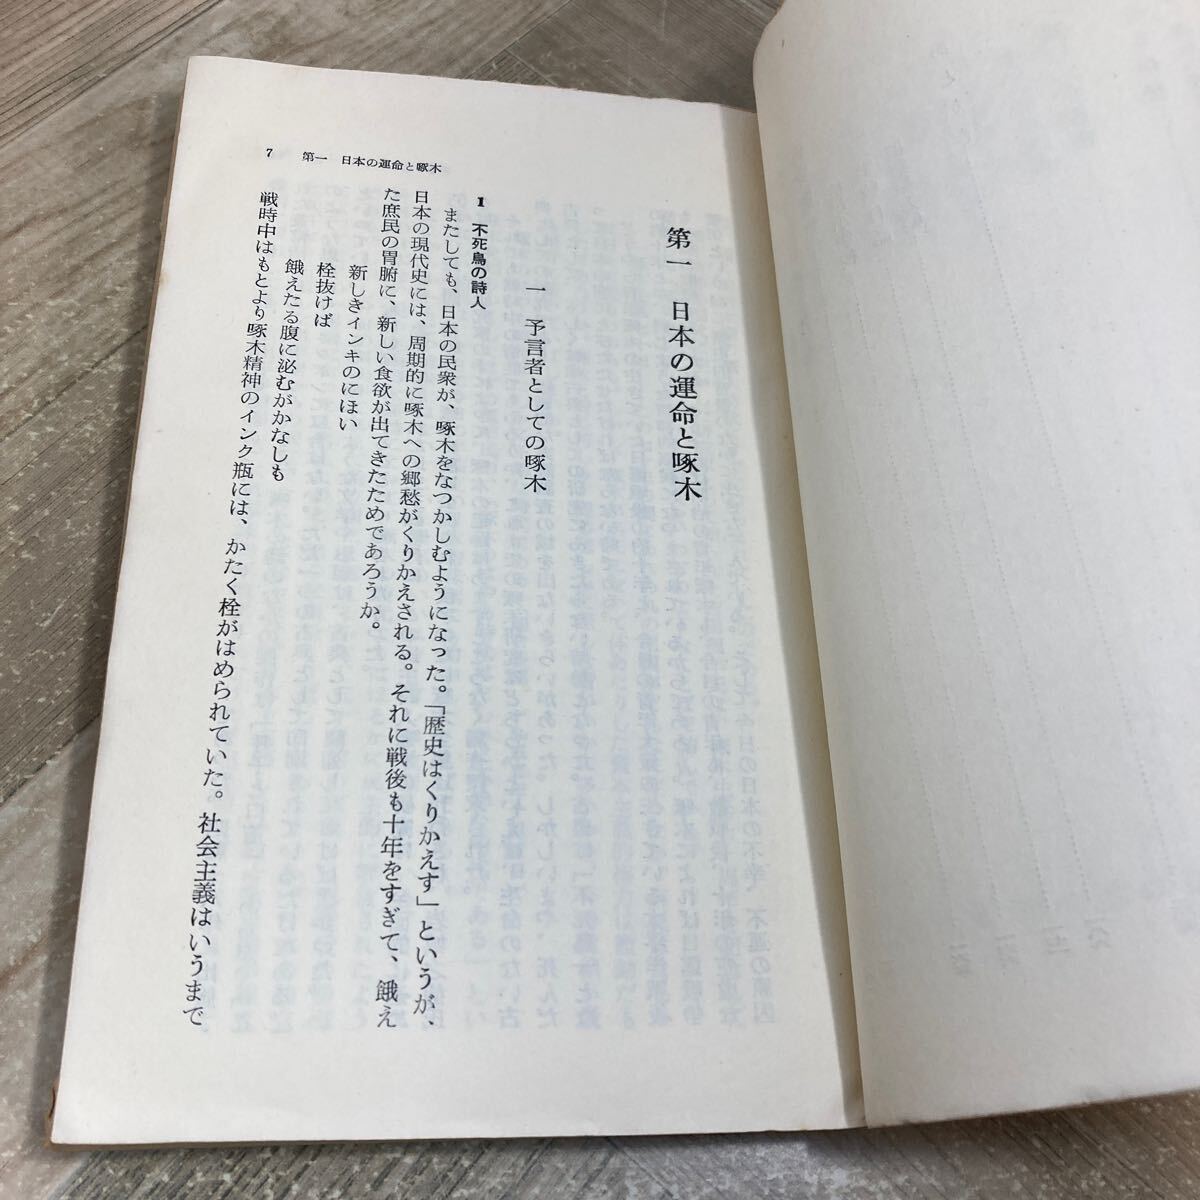 7　第一　日本の運命と啄木
第一　日本の運命と啄木
一　予言者としての啄木
1　不死鳥の詩人
またしても、日本の民衆が、啄木をなつかしむようになった。「歴史はくりかえす」というが、
日本の現代史には、周期的に啄木への郷愁がくりかえされる。それに戦後も十年をすぎて、餓え
た庶民の胃腑に、新しい食欲が出てきたためであろうか。
新しきインキのにほい
栓抜けば
餓えたる腹に泌むがかなしも
戦時中はもとより啄木精神のインク瓶には、かたく栓がはめられていた。社会主義はいうまで